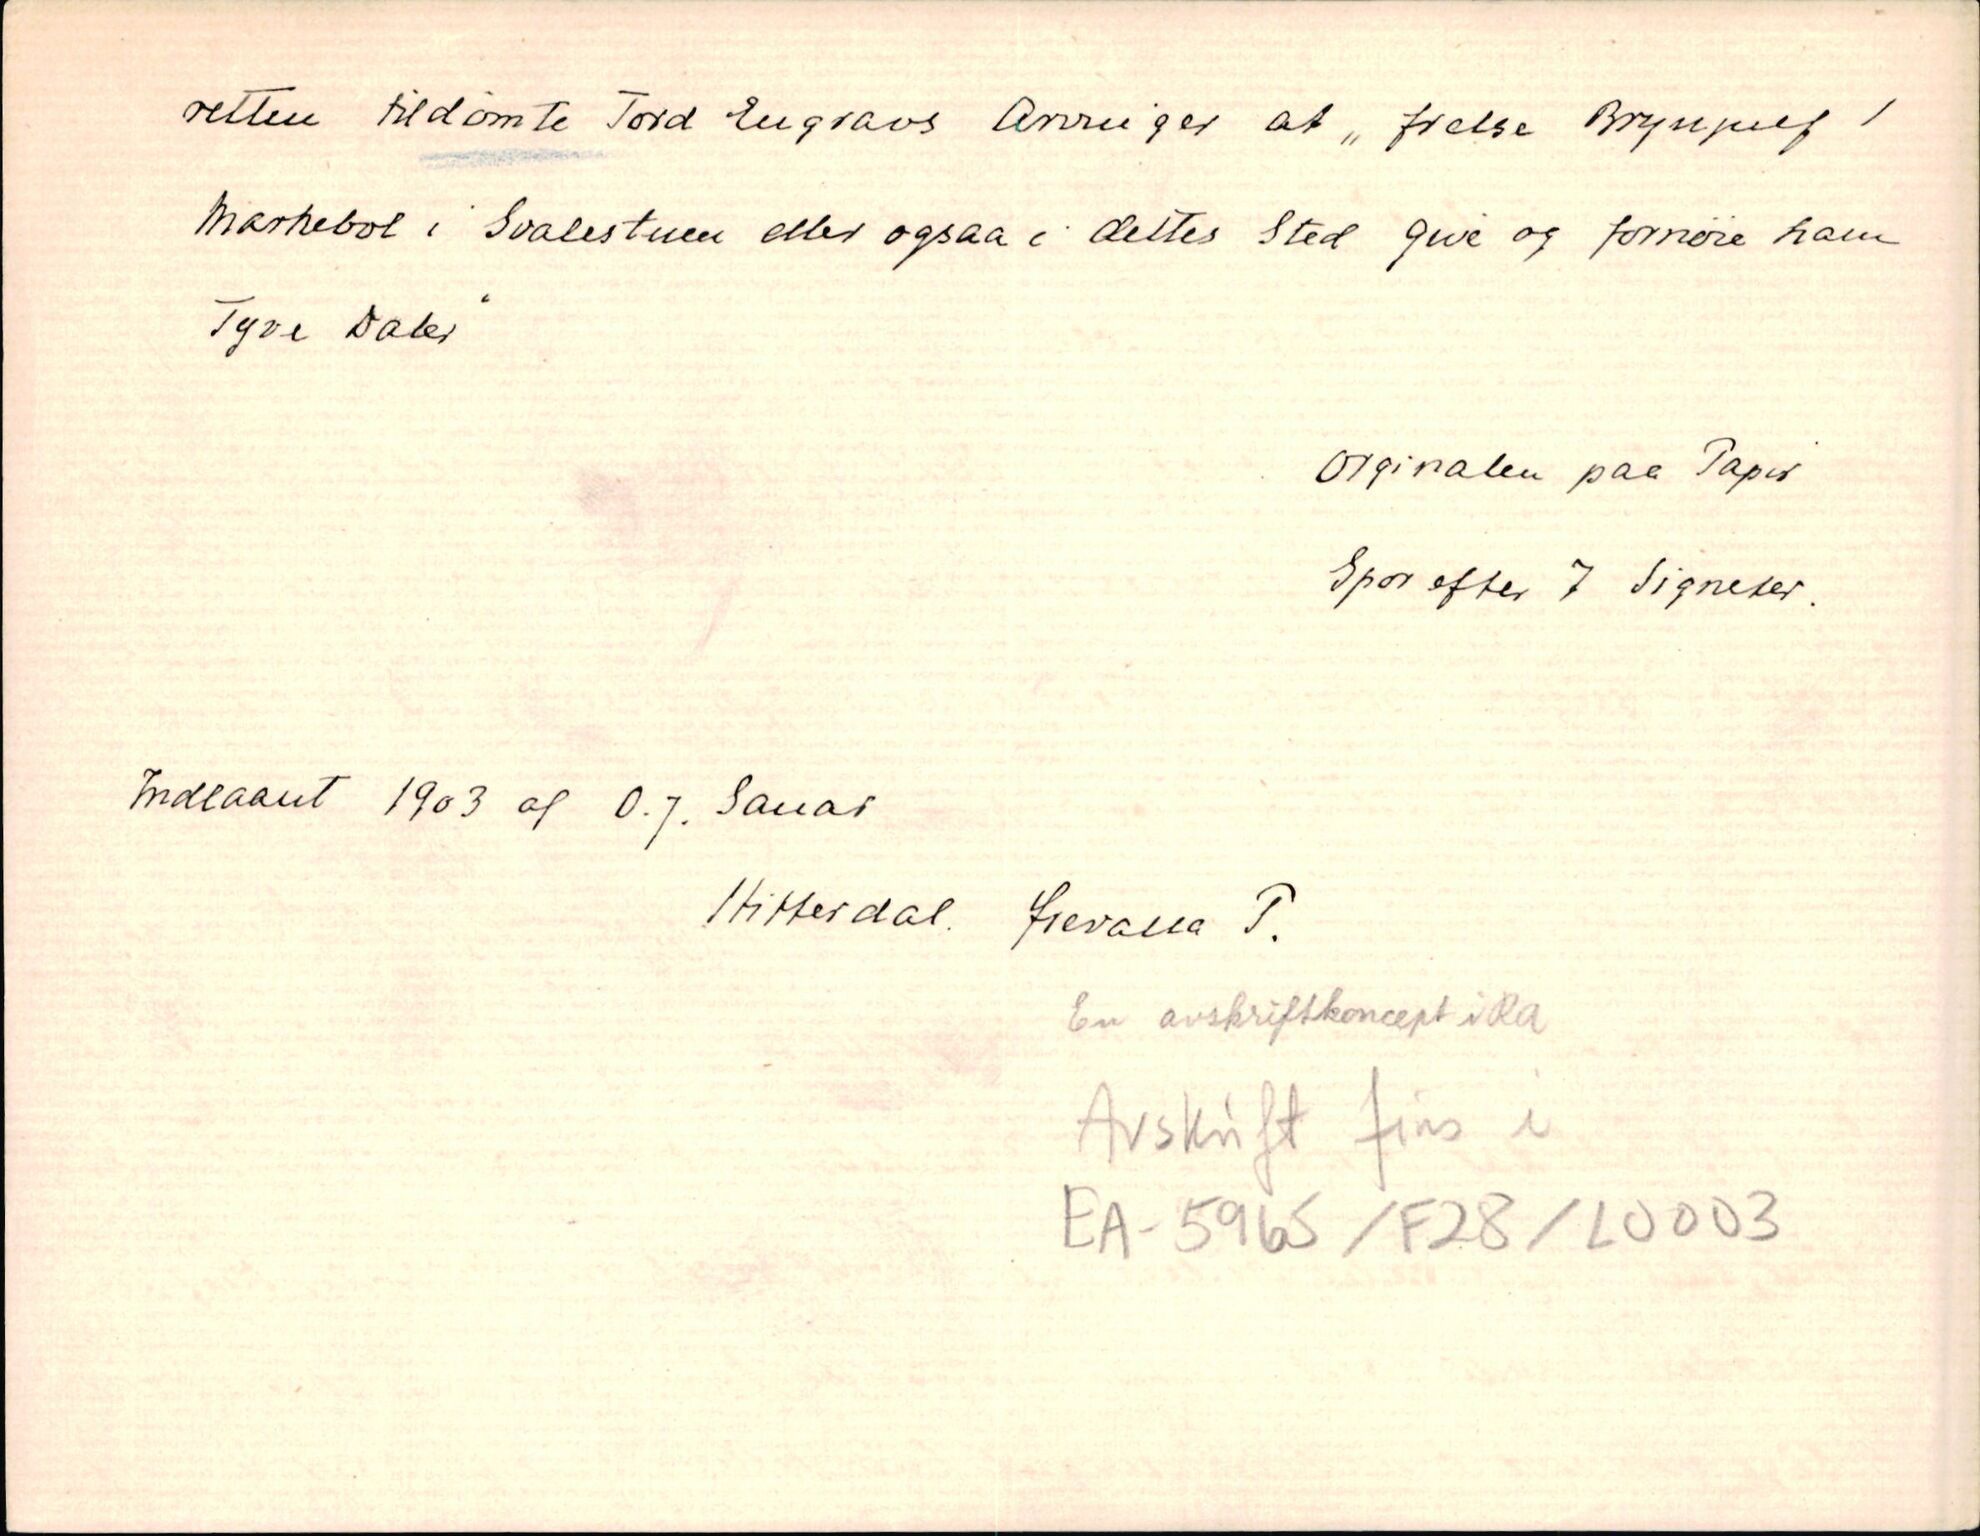 retten tildömte Tord Engravs Arvinger at „ frelse Brynjulf 1
Markebol i Svalestuen eller ogsaa i dettes Sted give og fornöie ham
Tyve Daler“
Orginalen paa Papir
Spor efter 7 Signeter.
Indlaant 1903 af O. J. Sauar
Hitterdal. P.
En avskriftkoncept i RA
Avskrift fins i
EA-5965/F28/L0003